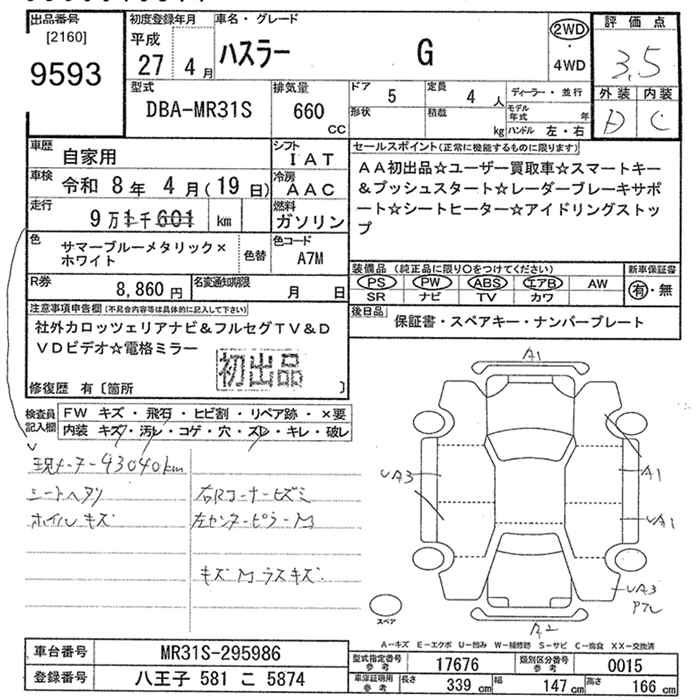 出品番号
[2160]
9593
初度登録年月
平成
27 4月
車名・グレード
ハスラー G
2WD
・
4WD
評価点
3.5
外装 内装
D C
型式
DBA-MR31S
排気量
660
CC
ドア 5
定員 4 人
ディーラー・並行
形状
積載 kg
モデル年式 年
ハンドル 左・右
車歴
自家用
シフト
IAT
車検
令和 8年 4月(19日)
冷房
AAC
走行
9万1千601 km
燃料
ガソリン
セールスポイント(正常に機能するものに限ります)
AA初出品☆ユーザー買取車☆スマートキー
&プッシュスタート☆レーダーブレーキサポ
ート☆シートヒーター☆アイドリングストッ
プ
色
サマーブルーメタリック×
ホワイト
色替
色コード
A7M
R券
8,860円
名変通知期限
月 日
装備品(純正品に限り○をつけてください)
PS PW ABS エアB AW
SR ナビ TV カワ
新車保証書
有・無
後日品
保証書・スペアキー・ナンバープレート
注意事項申告欄(不具合内容等は具体的に記入して下さい)
社外カロッツェリアナビ&フルセグTV&D
VDビデオ☆電格ミラー
初出品
修復歴 有〔箇所 〕
検査員
記入欄
FW キズ・飛石・ヒビ割・リペア跡・×要
内装 キズ・汚レ・コゲ・穴・ズレ・キレ・破レ
現メーター43040km
シートヘタリ
ホイルキズ
右Rコーナーヒズミ
左センターピラーM
キズMラスキズ
A1
UA3
A1
UA1
UA3
A2
スペア
A-キズ E-エクボ U-凹み W-補修跡 S-サビ C-腐食 XX-交換済
車台番号
MR31S-295986
登録番号
八王子 581 こ 5874
型式指定番号
参考
17676
類別区分番号
参考
0015
車庫証明用
参考
長さ 339 cm
幅 147 cm
高さ 166 cm